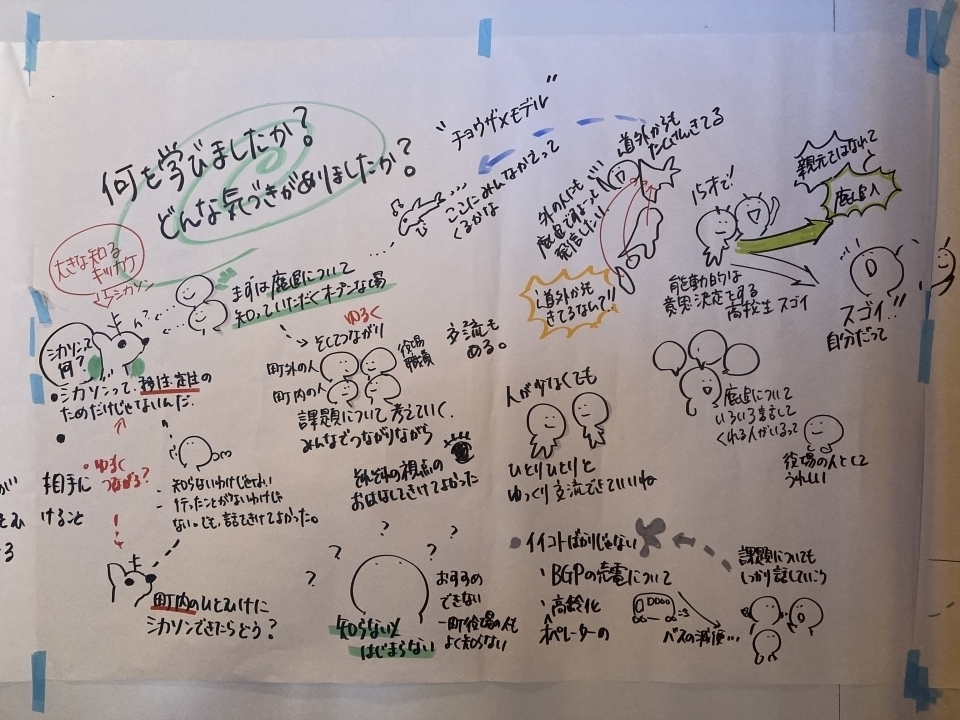 何を学びましたか?
どんな気づきがありましたか?
"チョウザメモデル"
ここにみんながえって
くるかな
道外からも
たくさんきてる
外の人にも
鹿追ですよっと
発信したい
道外からも
きてるなんて!!
15才で!
親元てはなれて
鹿追へ
能動的な
意思決定をする
高校生 スゴイ
スゴイ!!
自分だって
大きな知る
キッカケ
シカソン
まずは鹿追について
知っていただくオープンな場
シカソンって
何?
ん?
・シカソンって、移住・定住の
ためだけじゃないんだ。
ゆるく
→そしてつながり
町外の人
町内の人
役場
職員
課題について考えていく。
みんなでつながりながら
交流も
ある。
人が少なくても
ひとりひとりと
ゆっくり交流できていいね
鹿追について
いろいろ話して
くれる人がいるって
役場の人として
うれしい
・ゆるく
つながる?
相手に
けること
- 知らないわけじゃない
- 行ったことがないわけじゃ
ない。でも、話できけてよかった。
それぞれの視点の
おはなしきけてよかった
町内のひとむけに
シカソンできたらどう?
? ? ? ? ?
知らないと
はじまらない
おすすめ
できない
一町役場の人も
よく知らない
・イイコトばかりじゃない
、BGPの売電について
、高齢化
オペレーターの
バスの減便…
課題についても
しっかり話していこう